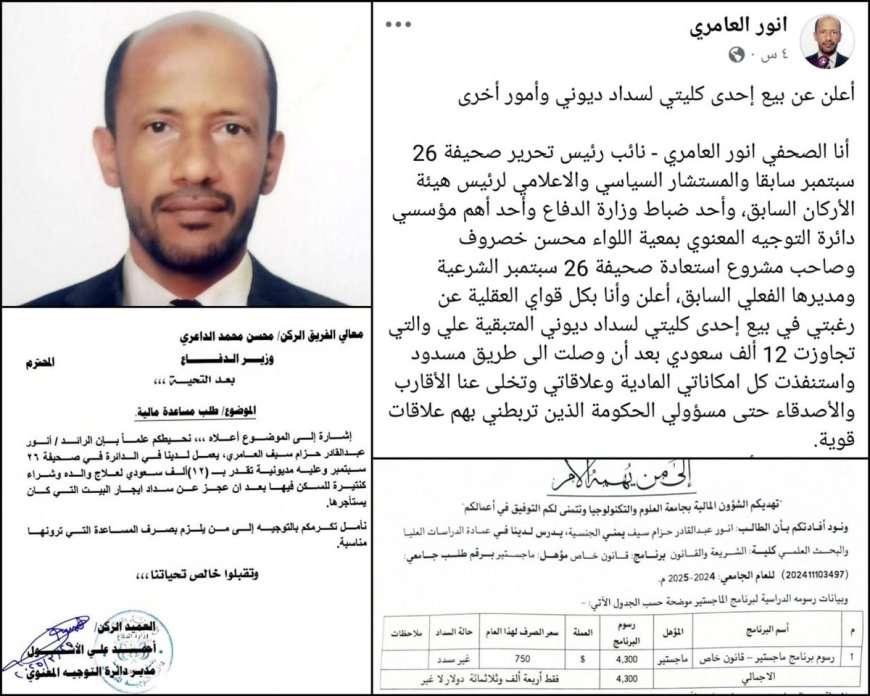 انور العامري
٤ س ·
أعلن عن بيع إحدى كليتي لسداد ديوني وأمور أخرى
أنا الصحفي انور العامري - نائب رئيس تحرير صحيفة 26
سبتمبر سابقا والمستشار السياسي والاعلامي لرئيس هيئة
الأركان السابق، وأحد ضباط وزارة الدفاع وأحد أهم مؤسسي
دائرة التوجيه المعنوي بمعية اللواء محسن خصروف
وصاحب مشروع استعادة صحيفة 26 سبتمبر الشرعية
ومديرها الفعلي السابق، أعلن وأنا بكل قواي العقلية عن
رغبتي في بيع إحدى كليتي لسداد ديوني المتبقية علي والتي
تجاوزت 12 ألف سعودي بعد أن وصلت الى طريق مسدود
واستنفذت كل امكاناتي المادية وعلاقاتي وتخلى عنا الأقارب
والأصدقاء حتى مسؤولي الحكومة الذين تربطني بهم علاقات
قوية.
معالي الفريق الركن/ محسن محمد الداعري
وزير الدفاع
المحترم
بعد التحية ،،،
الموضوع/ طلب مساعدة مالية.
إشارة إلى الموضوع أعلاه ،،، نحيطكم علماً بإن الرائد / أنور
عبدالقادر حزام سيف العامري، يعمل لدينا في الدائرة في صحيفة ٢٦
سبتمبر وعليه مديونية تقدر بـ (١٢)ألف سعودي لعلاج والده وشراء
كنتيرة للسكن فيها بعد ان عجز عن سداد ايجار البيت التي كان
يستأجرها.
نأمل تكرمكم بالتوجيه إلى من يلزم بصرف المساعدة التي ترونها
مناسبة.
وتقبلوا خالص تحياتنا ،،،
العميد الركن/
أحمد علي الأشول
مدير دائرة التوجيه المعنوي
إلى من يهمه الأمر
"تهديكم الشؤون المالية بجامعة العلوم والتكنولوجيا وتتمنى لكم التوفيق في أعمالكم"
ونود أفادتكم بأن الطالب: انور عبدالقادر حزام سيف يمني الجنسية، يدرس لدينا في عمادة الدراسات العليا
والبحث العلمي كلية: الشريعة والقانون برنامج: قانون خاص مؤهل: ماجستير برقم طلب جامعي:
(202411103497) للعام الجامعي: 2024-2025 م.
وبيانات رسومه الدراسية لبرنامج الماجستير موضحة حسب الجدول الآتي: -
م أسم البرنامج المؤهل رسوم البرنامج العملة سعر الصرف لهذا العام حالة السداد ملاحظات
١ رسوم برنامج ماجستير – قانون خاص ماجستير 4,300 $ 750 غير سدد
الاجمالي 4,300 فقط أربعة ألف وثلاثمائة دولار لا غير